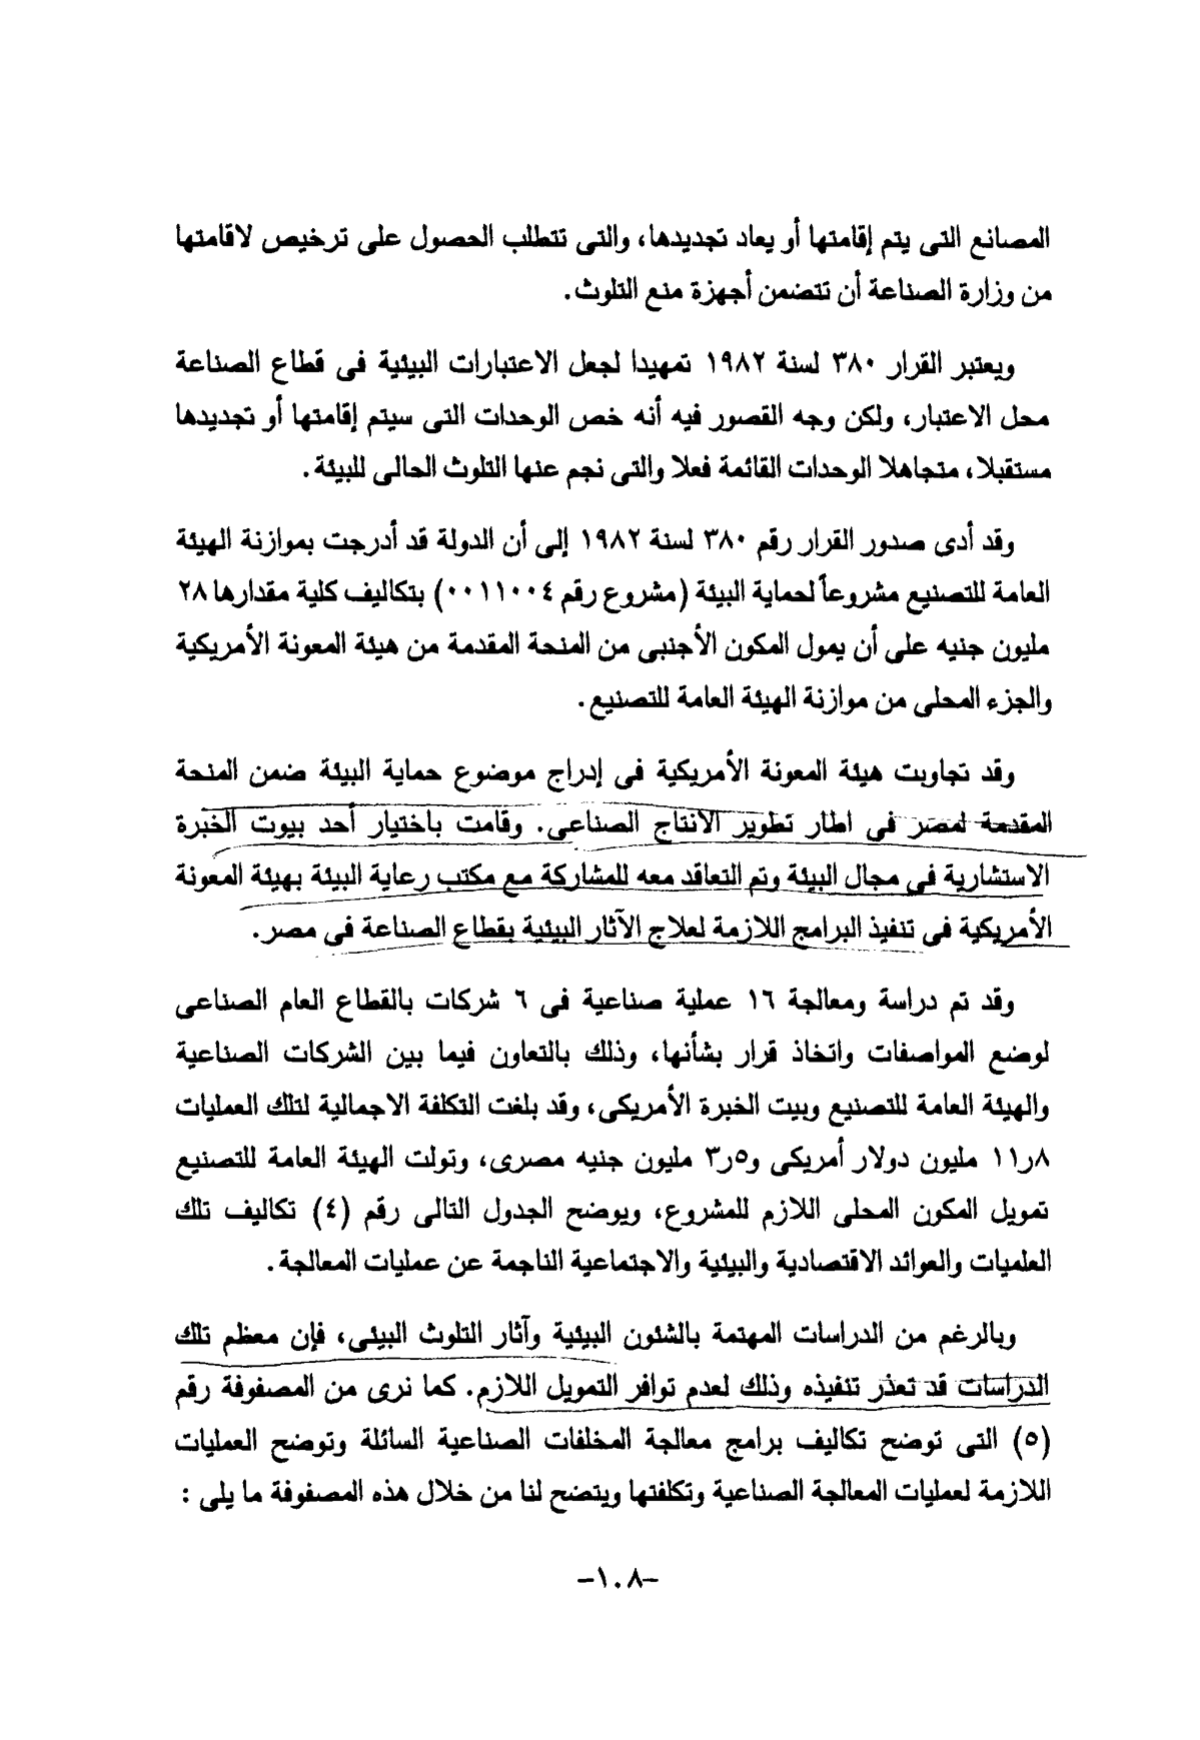 المصانع التى يتم إقامتها أو يعاد تجديدها، والتى تتطلب الحصول على ترخيص لاقامتها
من وزارة الصناعة أن تتضمن أجهزة منع التلوث.
ويعتبر القرار ٣٨٠ لسنة ١٩٨٢ تمهيدا لجعل الاعتبارات البيئية فى قطاع الصناعة
محل الاعتبار، ولكن وجه القصور فيه أنه خص الوحدات التى سيتم إقامتها أو تجديدها
مستقبلا، متجاهلا الوحدات القائمة فعلا والتى نجم عنها التلوث الحالى للبيئة.
وقد أدى صدور القرار رقم ٣٨٠ لسنة ١٩٨٢ إلى أن الدولة قد أدرجت بموازنة الهيئة
العامة للتصنيع مشروعاً لحماية البيئة (مشروع رقم ٠٠١١٠٠٤) بتكاليف كلية مقدارها ٢٨
مليون جنيه على أن يمول المكون الأجنبى من المنحة المقدمة من هيئة المعونة الأمريكية
والجزء المحلى من موازنة الهيئة العامة للتصنيع.
وقد تجاوبت هيئة المعونة الأمريكية فى إدراج موضوع حماية البيئة ضمن المنحة
المقدمة لمصر فى اطار تطوير الانتاج الصناعى. وقامت باختيار أحد بيوت الخبرة
الاستشارية فى مجال البيئة وتم التعاقد معه للمشاركة مع مكتب رعاية البيئة بهيئة المعونة
الأمريكية فى تنفيذ البرامج اللازمة لعلاج الآثار البيئية بقطاع الصناعة فى مصر.
وقد تم دراسة ومعالجة ١٦ عملية صناعية فى ٦ شركات بالقطاع العام الصناعى
لوضع المواصفات واتخاذ قرار بشأنها، وذلك بالتعاون فيما بين الشركات الصناعية
والهيئة العامة للتصنيع وبيت الخبرة الأمريكى، وقد بلغت التكلفة الاجمالية لتلك العمليات
٨ر١١ مليون دولار أمريكى و٥ر٣ مليون جنيه مصرى، وتولت الهيئة العامة للتصنيع
تمويل المكون المحلى اللازم للمشروع، ويوضح الجدول التالى رقم (٤) تكاليف تلك
العلميات والعوائد الاقتصادية والبيئية والاجتماعية الناجمة عن عمليات المعالجة.
وبالرغم من الدراسات المهتمة بالشئون البيئية وآثار التلوث البيئى، فإن معظم تلك
الدراسات قد تعذر تنفيذه وذلك لعدم توافر التمويل اللازم. كما نرى من المصفوفة رقم
(٥) التى توضح تكاليف برامج معالجة المخلفات الصناعية السائلة وتوضح العمليات
اللازمة لعمليات المعالجة الصناعية وتكلفتها ويتضح لنا من خلال هذه المصفوفة ما يلى :
-١٠٨-